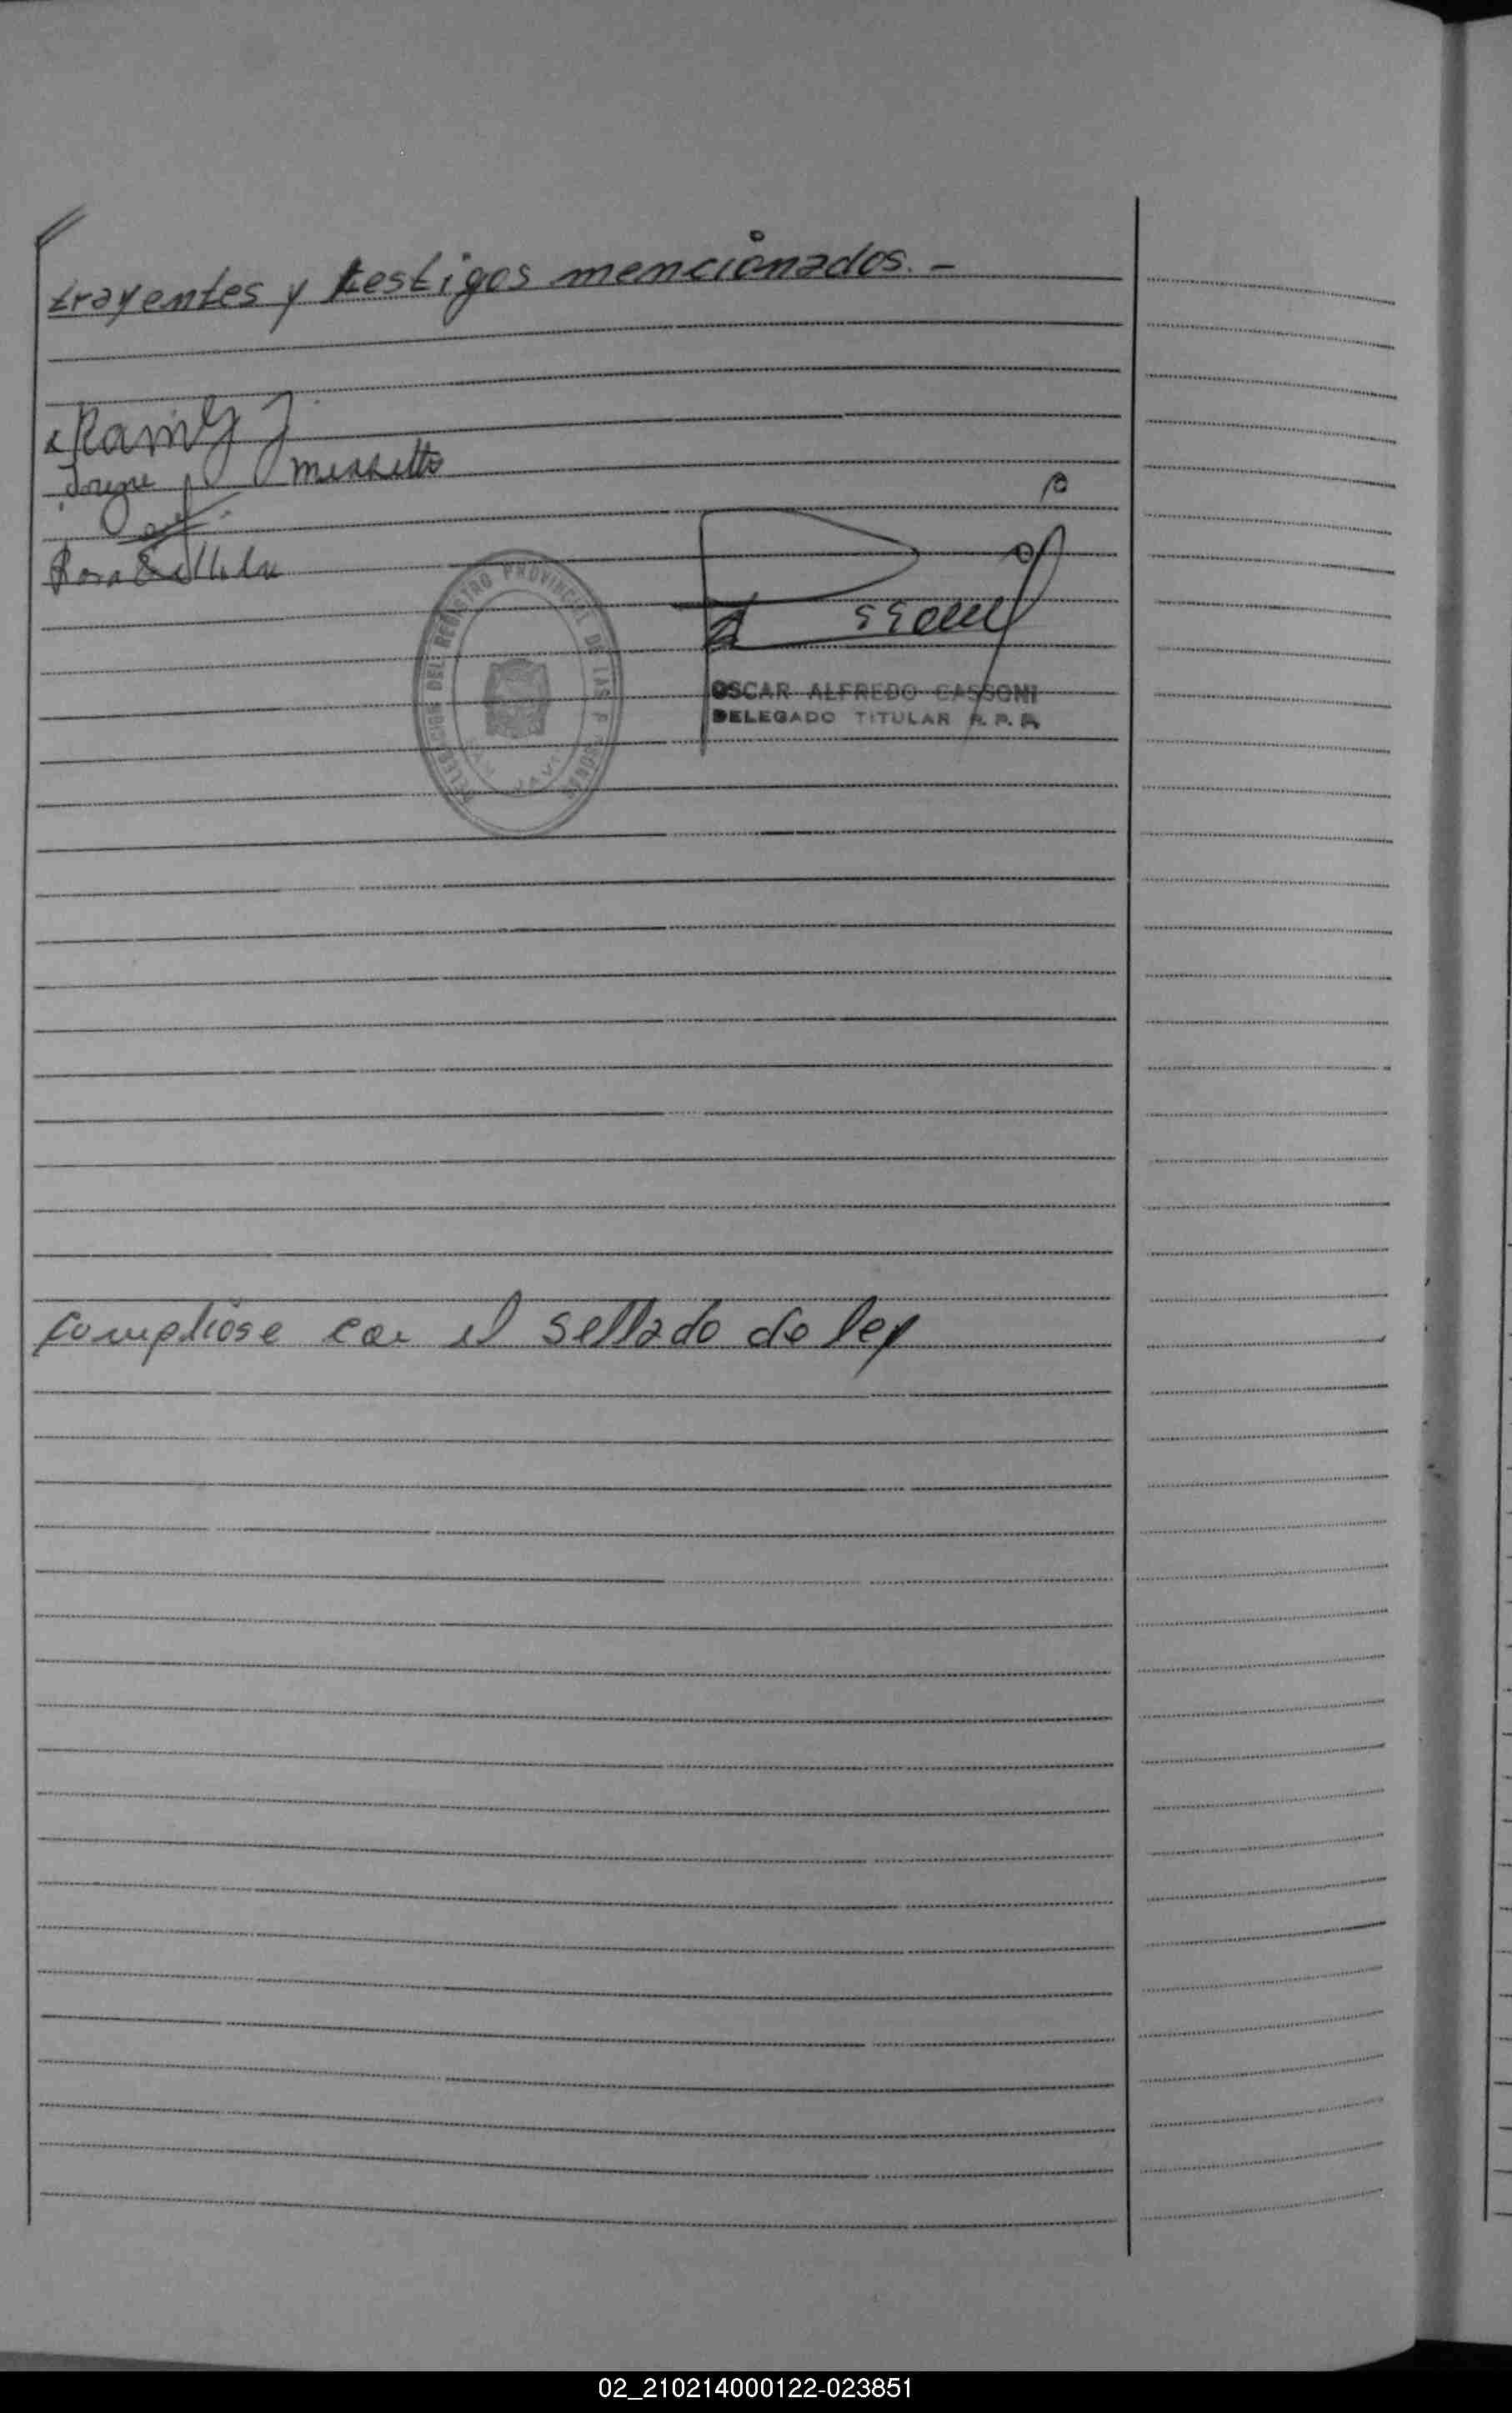 trayentes y testigos mencionados. -
Ramirez J.
Jorge Messetto
Rosa
DELEGACION DEL REGISTRO PROVINCIAL DE LAS PERSONAS
OSCAR ALFREDO CASSONI
DELEGADO TITULAR R. P. P.
Complióse con el sellado de ley
02_210214000122-023851